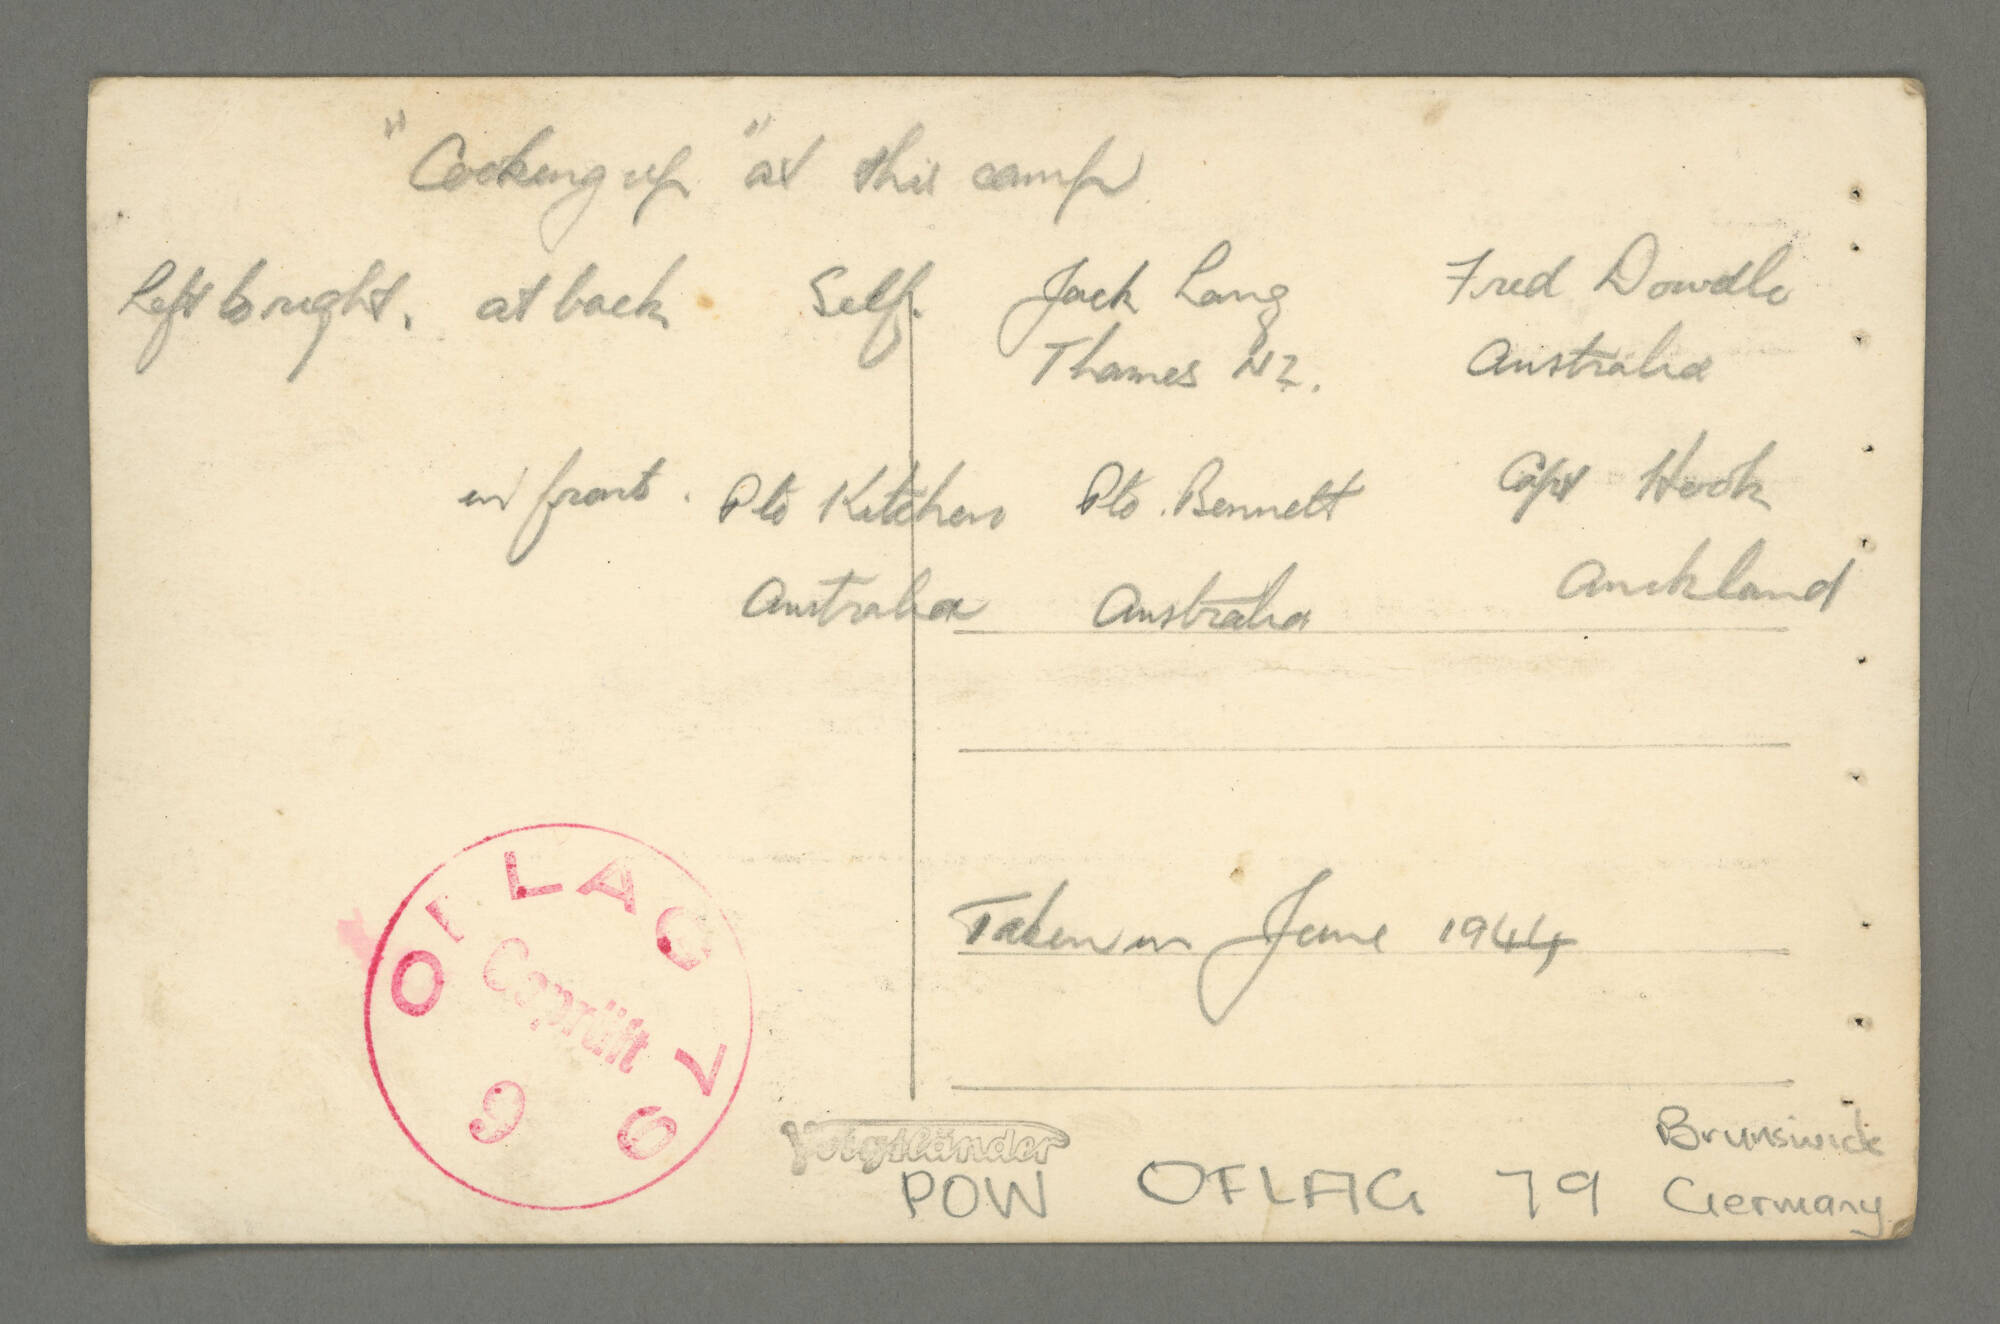 "Cooking up" at this camp
Left to right. at back Self. Jack Lang Fred Dowdle
Thames NZ. Australia
in front. Pte Kitchen Pte. Bennett Capt Hook
Australia Australia Auckland
Taken in June 1944
OFLAG 79
Geprüft
9
Voigtländer
POW OFLAG 79 Brunswick
Germany